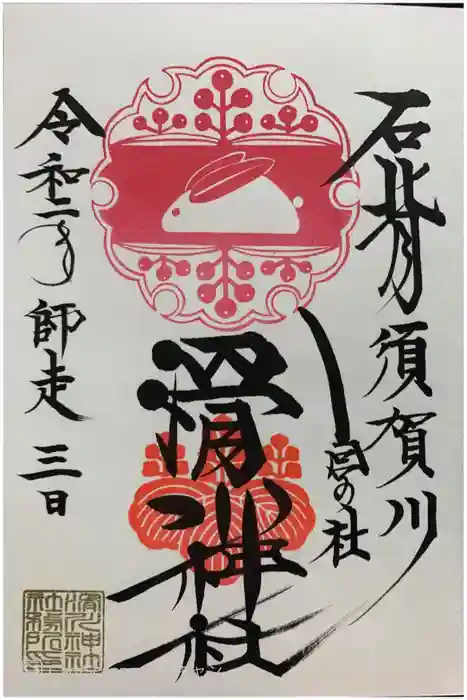 石背 須賀川
の社
滑川神社
令和二年 師走 三日
滑川神社社務所印